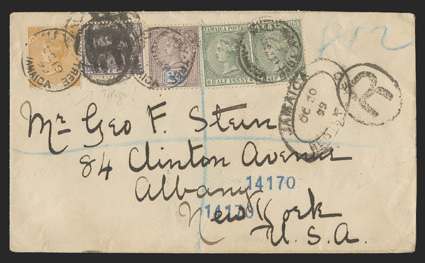 JAMAICA
HALF PENNY HALF
JAMAICA
OC 20
99
R
Mr Geo F. Stein
84 Clinton Avenue
Albany
14170
14170
New York
U.S.A.